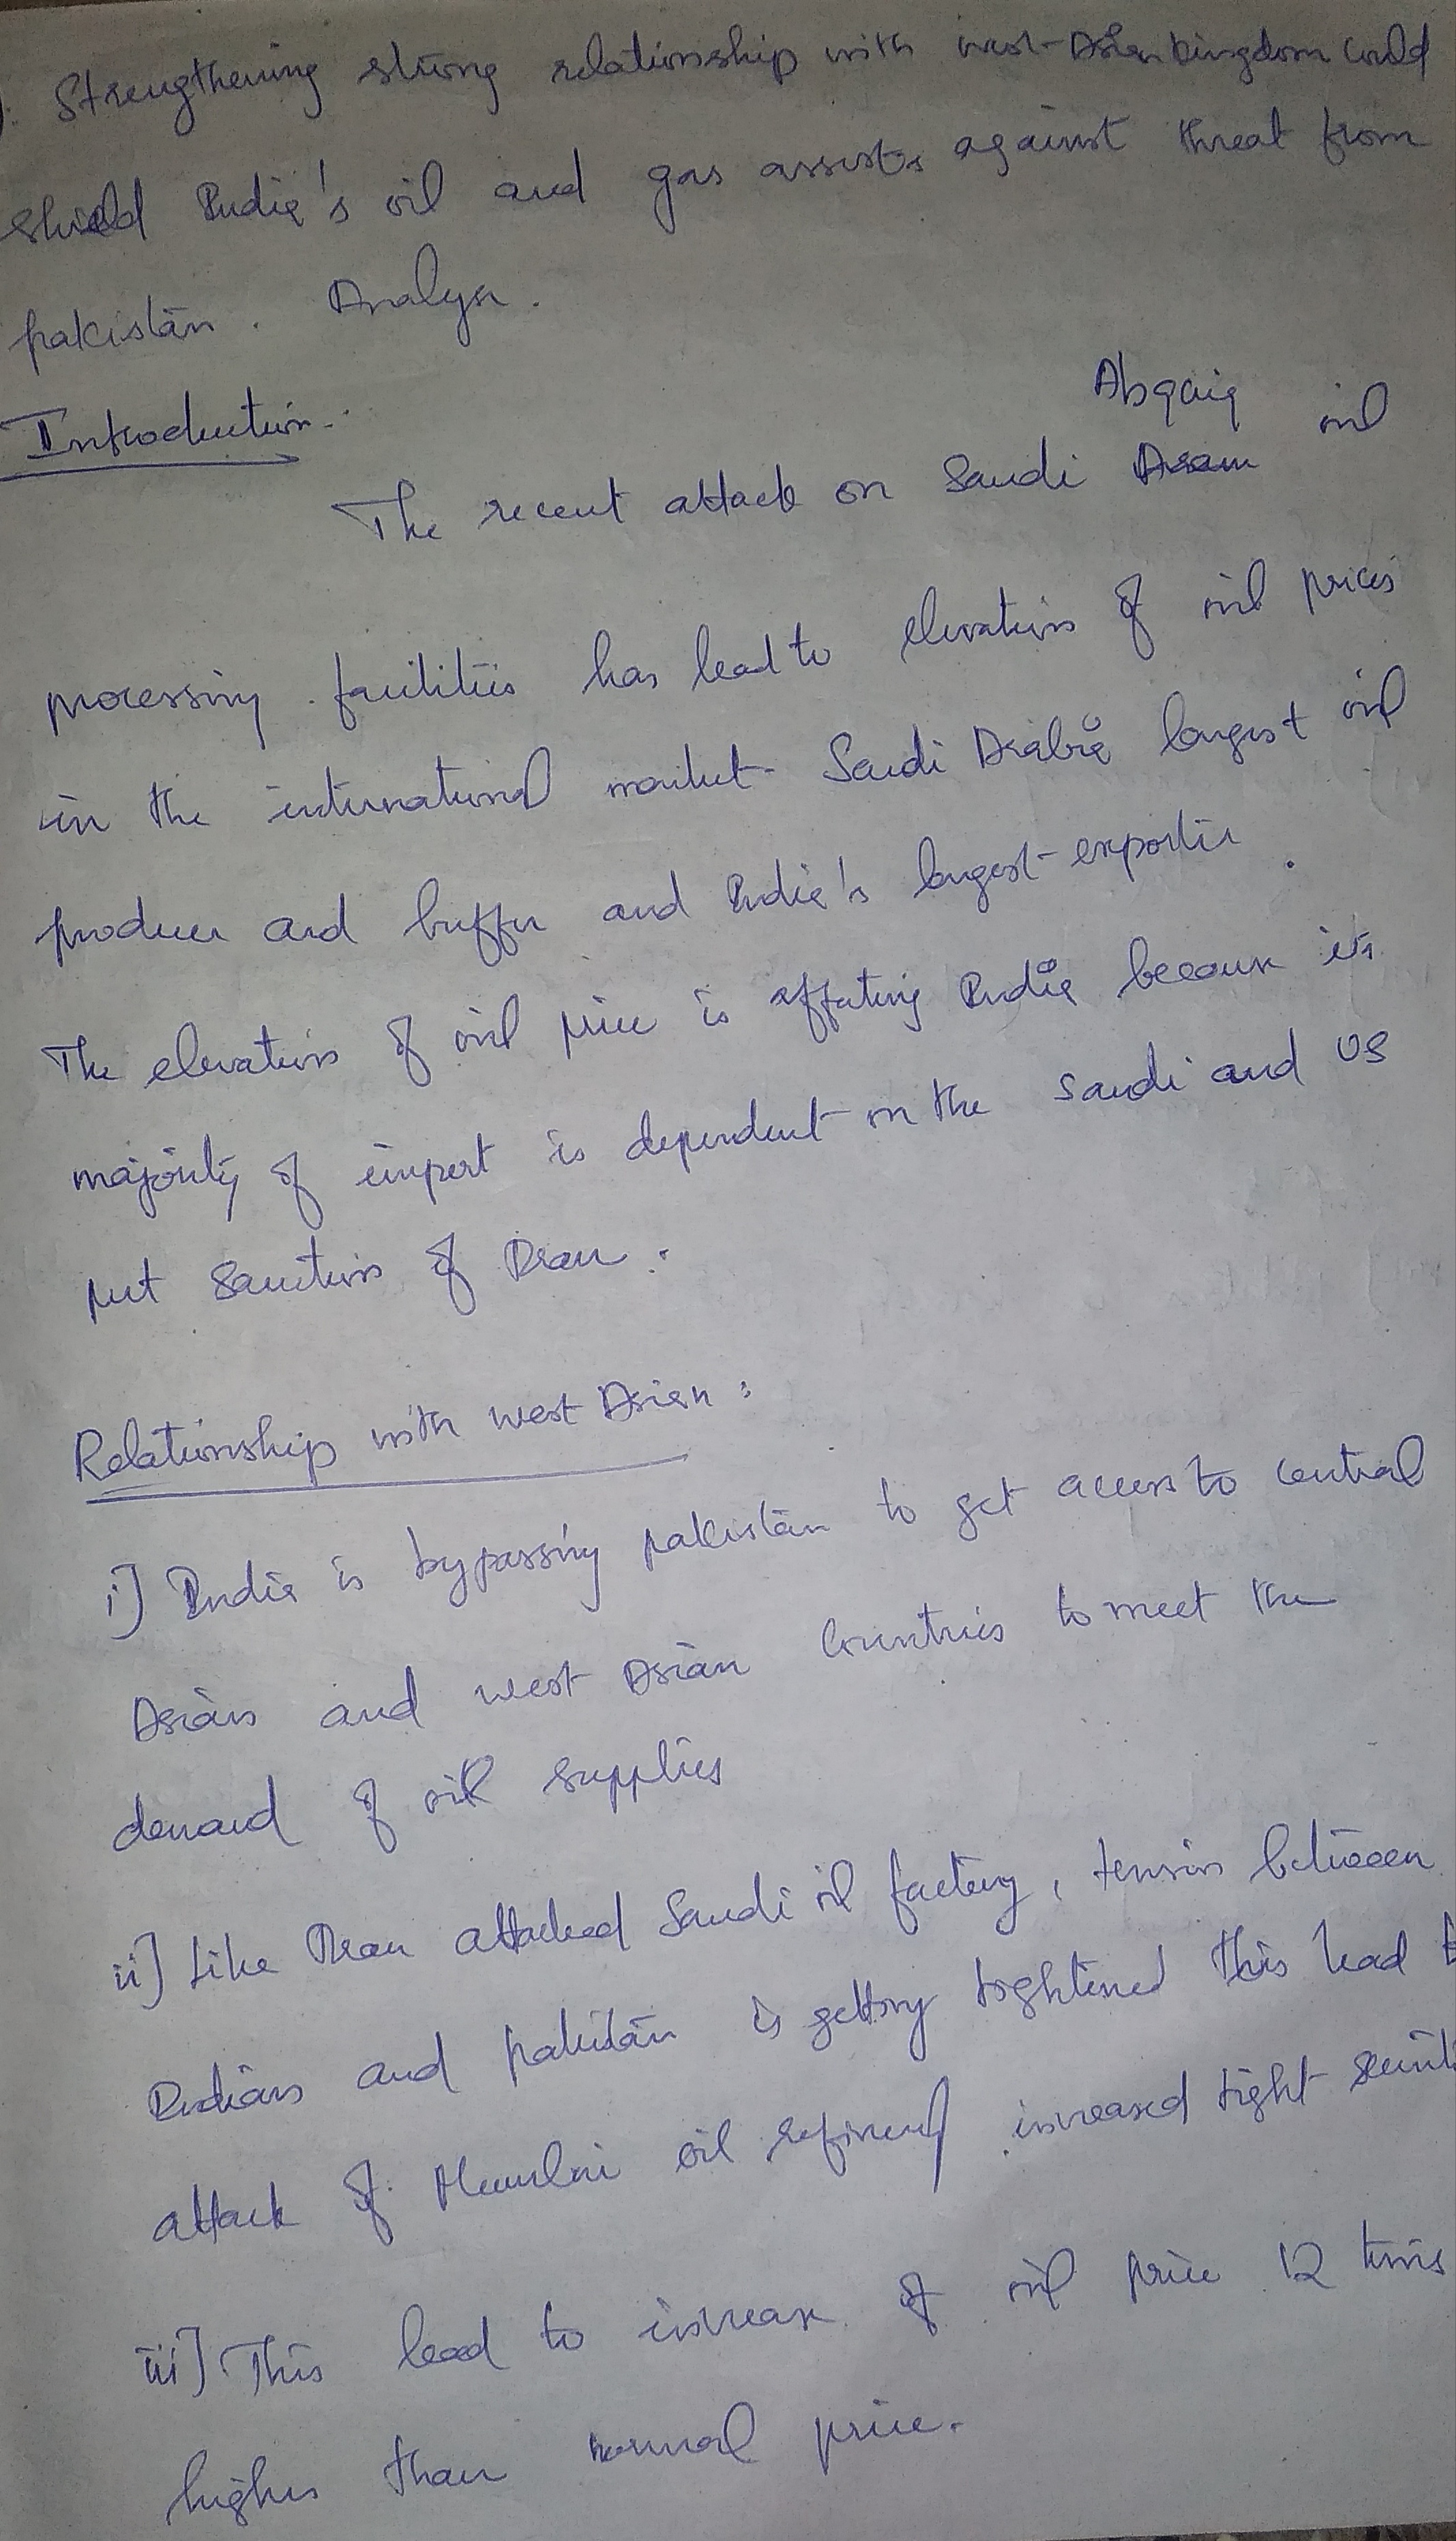 . Strengthening strong relationship with west-Asian kingdom could
shield India's oil and gas assists against threat from
pakistan. Analyse.
Introduction:
Abqaiq
The recent attack on Saudi oil
processing facilities has lead to elevation of oil prices
in the international market. Saudi Arabia largest oil
producer and buffer and India's largest exporter.
The elevation of oil price is affecting India because its
majority of import is dependent on the Saudi and US
put Sanctions of Iran.
Relationship with west Asian:
i] India is bypassing pakistan to get access to central
Asian and west Asian Countries to meet the
demand of oil supplies
ii] Like Iran attacked Saudi oil factory, tension between
Indian and pakistan is getting tightened this lead
attack of Mumbai oil refinery increased tight
iii] This lead to increase of oil price 12 times
higher than normal price.